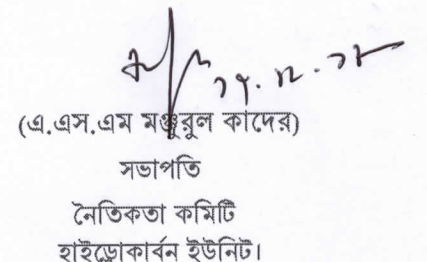 (এ.এস.এম মঞ্জুরুল কাদের)
সভাপতি
নৈতিকতা কমিটি
হাইড্রোকার্বন ইউনিট।